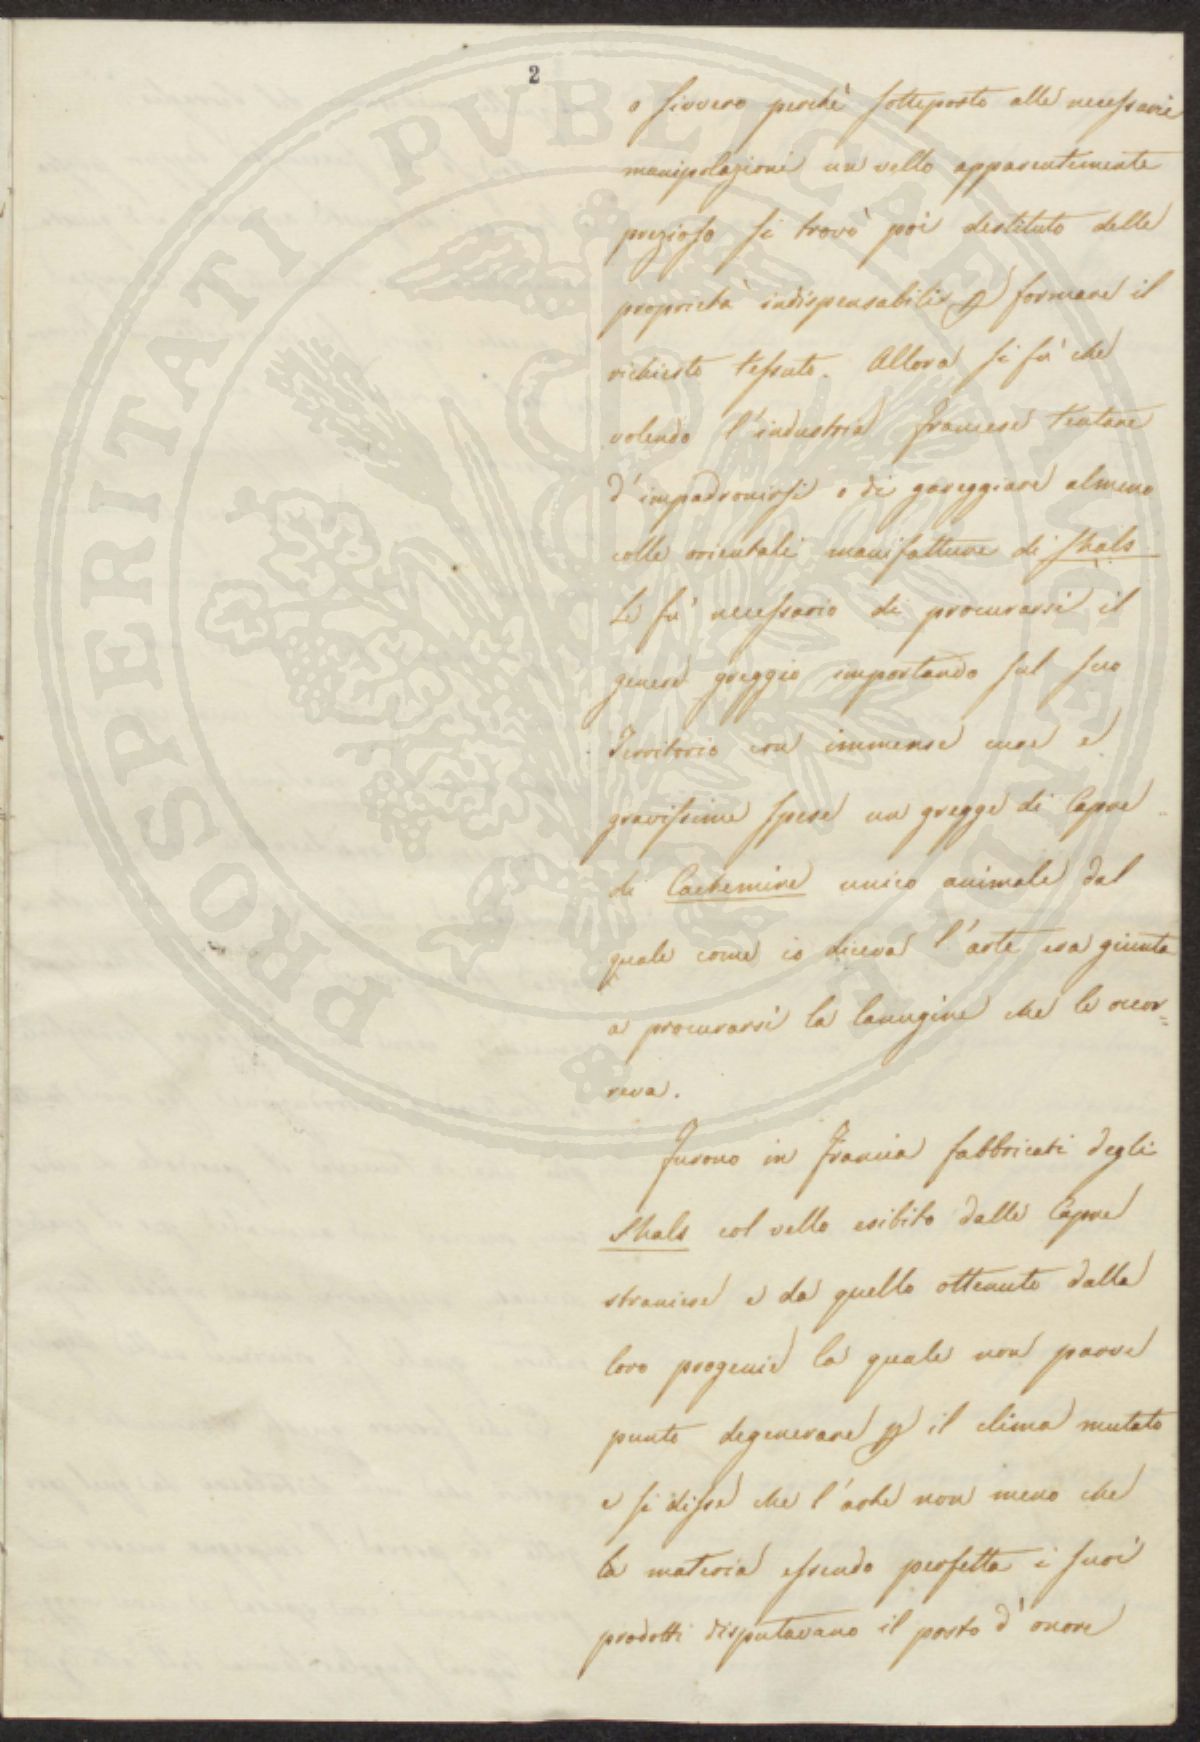 2
o sivvero perchè sottoposto alle necessarie
manipolazioni un vello apparentemente
prezioso si trovò poi destituto delle
proprietà indispensabili p formare il
richiesto tessuto. Allora si fu' che
volendo l'industria francese tentare
d'impadronirsi o di gareggiare almeno
colle orientali manifatture di shals
Le fu' necessario di procurarsi il
genere greggio importando sul suo
Territorio con immense cure e
gravissime spese un gregge di Capre
di Cachemire unico animale dal
quale come io diceva l'arte era giunta
a procurarsi la lanugine che le occor=
reva.
Furono in Francia fabbricati degli
Shals col vello esibito dalle Capre
straniere e da quello ottenuto dalla
loro progenie la quale non parve
punto degenerare p il clima mutato
e si disse che l'arte non meno che
la materia essendo perfetta i suoi
prodotti disputavano il posto d'onore
PROSPERITATI PUBLICAE AUGENDAE